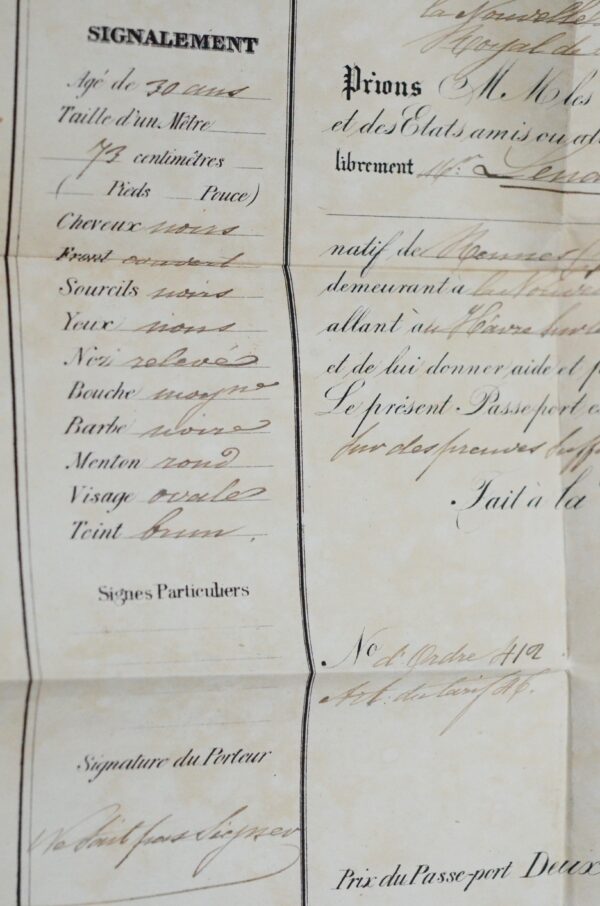 SIGNALEMENT
Agé de 30 ans
Taille d'un Mêtre
73 centimêtres
( Pieds Pouce )
Cheveux noirs
Front couvert
Sourcils noirs
Yeux noirs
Nez relevé
Bouche moyne
Barbe noire
Menton rond
Visage ovale
Teint brun.
Signes Particuliers
Signature du Porteur
Ne Sait pas Signer
la Nouvelle
Royal de
Prions M.M. les
et des Etats amis ou al
librement Mr.
natif de Rennes
demeurant à la Nouve
allant au Hâvre sur le
et de lui donner aide et p
Le présent Passe-port e
Sur des preuves suff
Fait à la
No d'Ordre 412
Art. du tarif 46.
Prix du Passe-port Deux